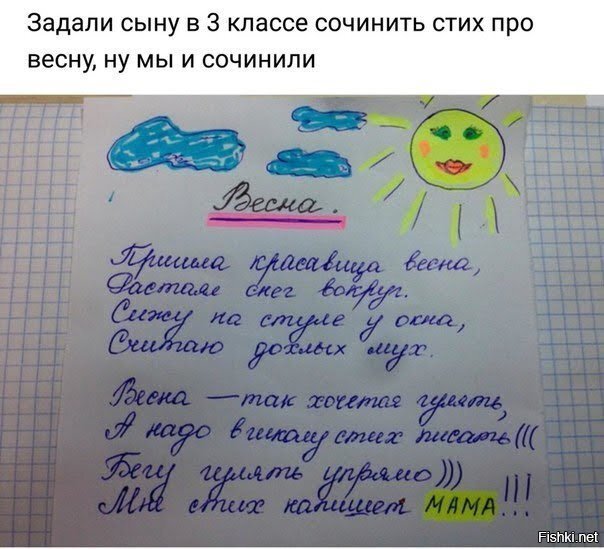 Задали сыну в 3 классе сочинить стих про
весну, ну мы и сочинили
Весна.
Пришла красавица весна,
Растаял снег вокруг.
Сижу на стуле у окна,
Считаю дохлых мух.
Весна – так хочется гулять,
А надо в школу стих писать(((
Бегу гулять упрямо)))
Мне стих напишет МАМА!!!
Fishki.net